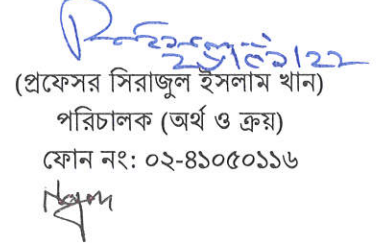 (প্রফেসর সিরাজুল ইসলাম খান)
পরিচালক (অর্থ ও ক্রয়)
ফোন নং: ০২-৪১০৫০১১৬